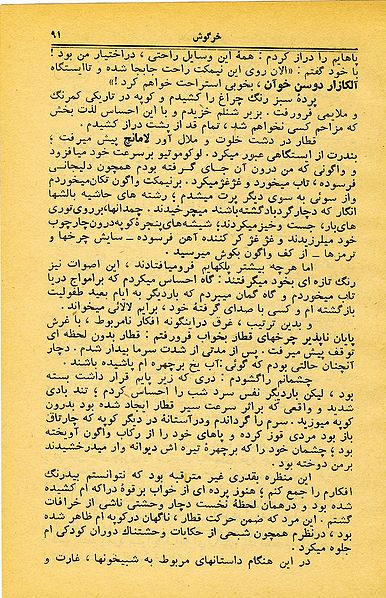 خرگوش ۹۱
پاهایم را دراز کردم : همهٔ این وسایل راحتی ، دراختیار من بود !
با خود گفتم : «الان روی این نیمکت راحت جابجا شده و تاایستگاه
آلکازار دوسن خوآن ، بخوبی استراحت خواهم کرد !»
پردهٔ سبز رنگ چراغ را کشیدم و کوپه در تاریکی کمرنگ
و ملایمی فرورفت . بزیر شنلم خزیدم و با این احساس لذت بخش
که مزاحم کسی نخواهم شد ، تمام قد از پشت دراز کشیدم .
قطار در دشت خلوت و ملال آور لامانچ پیش میرفت ؛
بندرت از ایستگاهی عبور میکرد . لوکوموتیو برسرعت خود میافزود
و واگونی که من درون آن جای گرفته بودم همچون دلیجانی
فرسوده ، تاب میخورد و غژغژمیکرد . برنیمکت واگون تکان‌میخوردم
واز سوئی به سوی دیگر پرت میشدم ؛ رشته های حاشیه بالشها
انگار که دچارگردبادگشته‌باشند میچرخیدند . چمدانها،برروی‌توری
های‌بار، جست وخیزمیکردند؛ شیشه‌های‌پنجرهٔ‌کوپه‌درون‌چارچوب
خود میلرزیدند و غژ غژ کر کنندهٔ آهن فرسوده ـ سایش چرخها و
ترمزها ـ از کف واگون بگوش میرسید .
اما هرچه بیشتر پلکهایم فرومیافتادند ، این اصوات نیز
رنگ تازه ای بخود میگرفتند : گاه احساس میکردم که برامواج دریا
تاب میخوردم و گاه گمان میبردم که باردیگر به ایام بعید طفولیت
بازگشته ام و کسی با صدای گرفتهٔ خود ، برایم لالائی میخواند .
و بدین ترتیب ، غرق دراینگونه افکار نامربوط ، با غرش
پایان ناپذیر چرخهای قطار بخواب فرورفتم : قطار بدون لحظه ای
توقف پیش میرفت . پس از مدتی از شدت سرما بیدار شدم . دچار
آنچنان حالتی بودم که گوئی :آب یخ برچهره ام پاشیده باشند .
چشمانم راگشودم : دری که زیر پایم قرار داشت بسته
بود ، لیکن باردیگر نفس سرد شب را احساس کردم ؛ تند بادی
شدید و واقعی که براثر سرعت سیر قطار ایجاد شده بود بدرون
کوپه میوزید . سرم را گرداندم ودرآستانهٔ در دیگر کوپه که چارتاق
باز بود مردی قوز کرده و پاهای خود را از رکاب واگون آویخته
بود ؛ چشمان خود را که برچهرهٔ تیره اش دیوانه وار میدرخشیدند
برمن دوخته بود .
این منظره بقدری غیر مترقبه بود که نتوانستم بیدرنگ
افکارم را جمع کنم ؛ هنوز پرده ای از خواب برقوهٔ دراکه ام کشیده
شده بود و درهمان لحظهٔ نخست دچار وحشتی ناشی از خرافات
گشتم . این مرد که ضمن حرکت قطار ، ناگهان درکوپه ام ظاهر شده
بود ، درنظرم همچون شبحی از حکایات وحشتناك دوران کودکی ام
جلوه میکرد .
در این هنگام داستانهای مربوط به شبیخونها ، غارت و